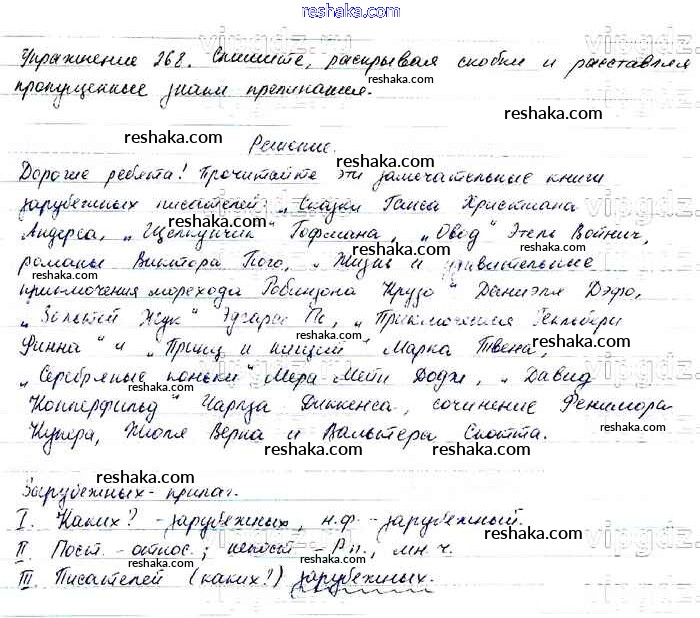 reshaka.com
Упражнение 268. Спишите, раскрывая скобки и расставляя
пропущенные знаки препинания.
Решение.
Дорогие ребята! Прочитайте эти замечательные книги
зарубежных писателей: „Сказки Ганса Христиана
Андерса, „Щелкунчик" Гофмана, „Овод" Этель Войнич,
романы Виктора Гюго, „Жизнь и удивительные
приключения морехода Робинзона Крузо" Даниэля Дэфо,
„Золотой Жук" Эдгара По, „Приключения Гекльбери
Финна" и „Принц и нищий" Марка Твена,
„Серебряные коньки" Мери Мейп Додж, „Давид
Копперфильд" Чарлза Диккенса, сочинение Фенимора
Купера, Жюля Верна и Вальтера Скотта.
Зарубежных - прилаг.
I. Каких? - зарубежных, н.ф. - зарубежный.
II. Пост. - относ.; непост - Р.п., мн.ч.
III. Писателей (каких?) зарубежных.